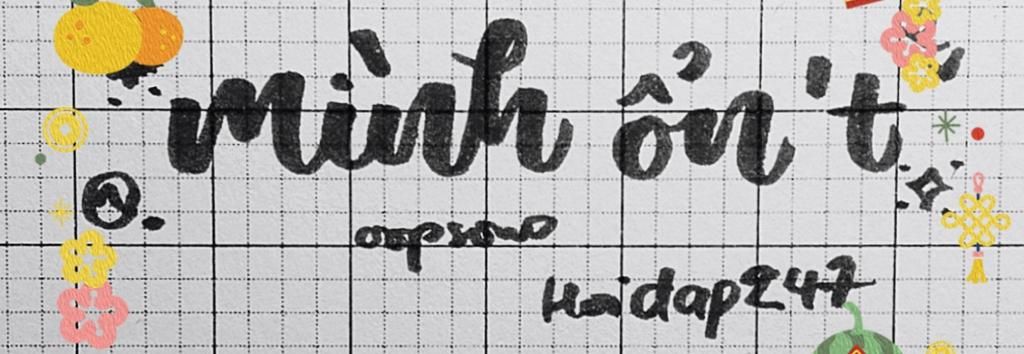 mình ổn't
oopsono
Hoidap247